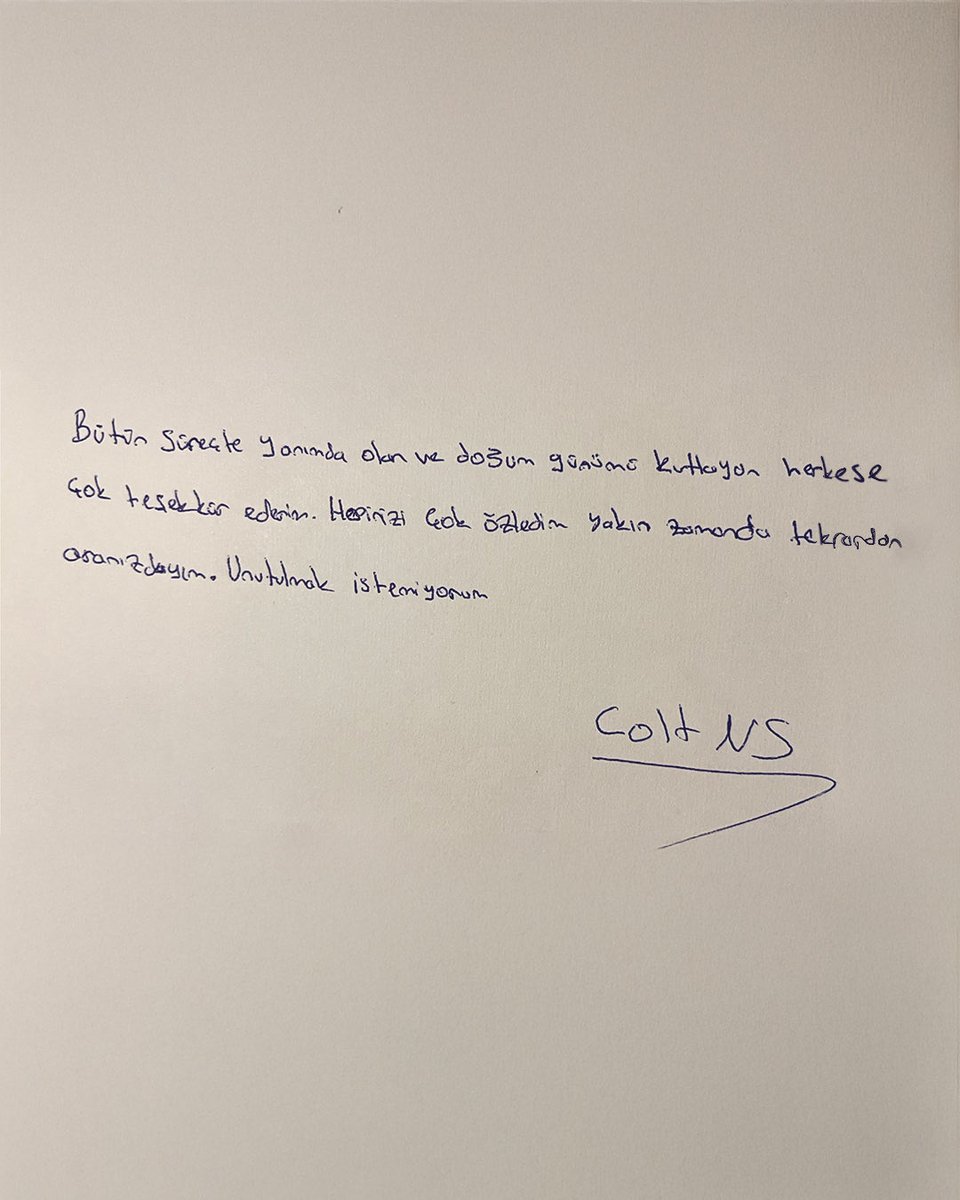 Bütün süreçte yanımda olan ve doğum günümü kutlayan herkese
çok teşekkür ederim. Hepinizi çok özledim yakın zamanda tekrardan
aranızdayım. Unutulmak istemiyorum
Colt NS